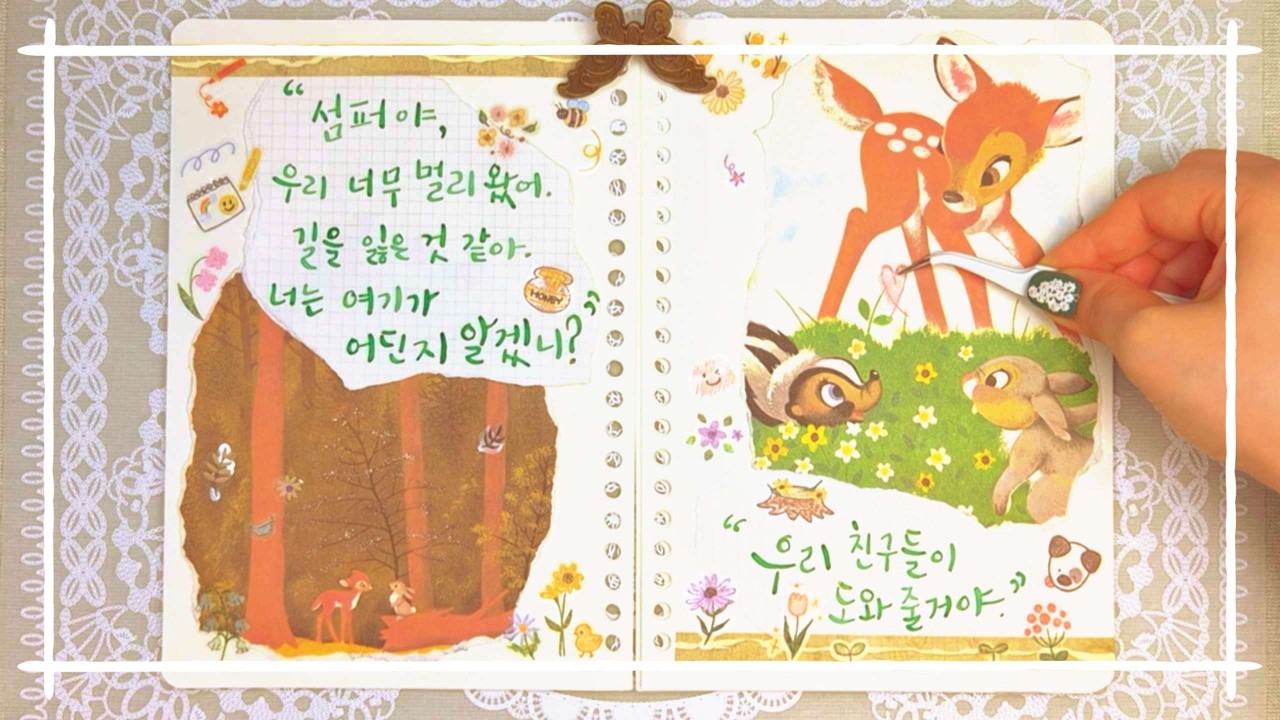 “섬퍼야,
우리 너무 멀리 왔어.
길을 잃은 것 같아.
너는 여기가
어딘지 알겠니?”
HONEY
“우리 친구들이
도와 줄거야.”